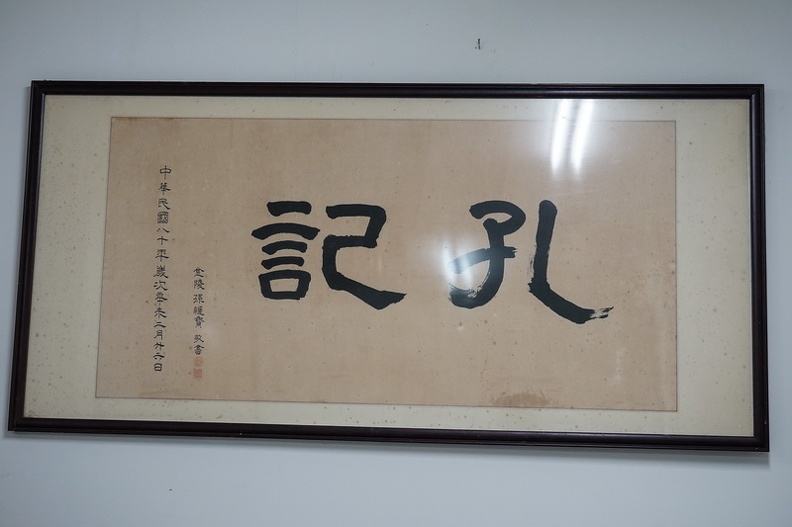 孔記
金陵孫暖寶敬書
中華民國八十年歲次辛未二月廿六日